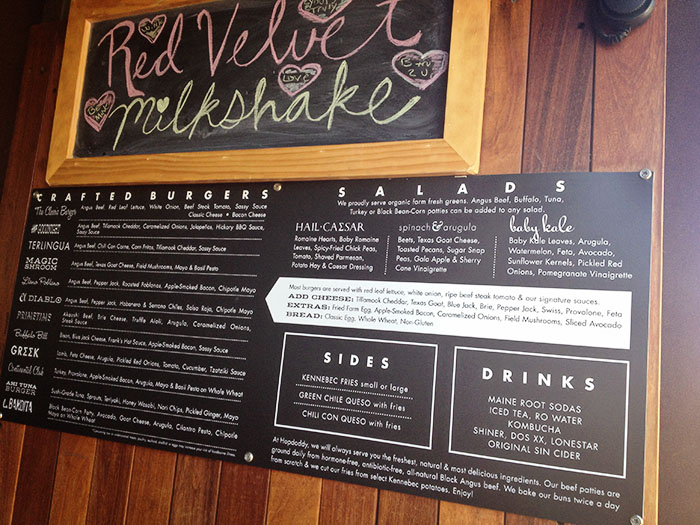 Red Velvet
Milkshake
Be Mine
Love
B tru 2 U
CRAFTED BURGERS
The Classic Burger
Angus Beef, Red Leaf Lettuce, White Onion, Beef Steak Tomato, Sassy Sauce
Classic Cheese • Bacon Cheese
#GOODNIGHT
Angus Beef, Tillamook Cheddar, Caramelized Onions, Jalapeños, Hickory BBQ Sauce,
Sassy Sauce
TERLINGUA
Angus Beef, Chili Con Carne, Corn Fritos, Tillamook Cheddar, Sassy Sauce
MAGIC
SHROOM
Angus Beef, Texas Goat Cheese, Field Mushrooms, Mayo & Basil Pesto
Llano Poblano
Angus Beef, Pepper Jack, Roasted Poblanos, Apple-Smoked Bacon, Chipotle Mayo
El DIABLO
Angus Beef, Pepper Jack, Habanero & Serrano Chiles, Salsa Roja, Chipotle Mayo
PRIMETIME
Akaushi Beef, Brie Cheese, Truffle Aioli, Arugula, Caramelized Onions,
Steak Sauce
Buffalo Bill
Bison, Blue Jack Cheese, Frank's Hot Sauce, Apple-Smoked Bacon, Sassy Sauce
GREEK
Lamb, Feta Cheese, Arugula, Pickled Red Onions, Tomato, Cucumber, Tzatziki Sauce
Continental Club
Turkey, Provolone, Apple-Smoked Bacon, Arugula, Mayo & Basil Pesto on Whole Wheat
AHI TUNA
BURGER
Sushi-Grade Tuna, Sprouts, Teriyaki, Honey Wasabi, Nori Chips, Pickled Ginger, Mayo
LA BANDITA
Black Bean-Corn Patty, Avocado, Goat Cheese, Arugula, Cilantro Pesto, Chipotle
Mayo on Whole Wheat
SALADS
We proudly serve organic farm fresh greens. Angus Beef, Buffalo, Tuna,
Turkey or Black Bean-Corn patties can be added to any salad.
HAIL CAESAR
Romaine Hearts, Baby Romaine
Leaves, Spicy-Fried Chick Peas,
Tomato, Shaved Parmesan,
Potato Hay & Caesar Dressing
spinach & arugula
Beets, Texas Goat Cheese,
Toasted Pecans, Sugar Snap
Peas, Gala Apple & Sherry
Cane Vinaigrette
baby kale
Baby Kale Leaves, Arugula,
Watermelon, Feta, Avocado,
Sunflower Kernels, Pickled Red
Onions, Pomegranate Vinaigrette
Most burgers are served with red leaf lettuce, white onion, ripe beef steak tomato & our signature sauces.
ADD CHEESE: Tillamook Cheddar, Texas Goat, Blue Jack, Brie, Pepper Jack, Swiss, Provolone, Feta
EXTRAS: Fried Farm Egg, Apple-Smoked Bacon, Caramelized Onions, Field Mushrooms, Sliced Avocado
BREAD: Classic Egg, Whole Wheat, Non-Gluten
SIDES
KENNEBEC FRIES small or large
GREEN CHILE QUESO with fries
CHILI CON QUESO with fries
DRINKS
MAINE ROOT SODAS
ICED TEA, RO WATER
KOMBUCHA
SHINER, DOS XX, LONESTAR
ORIGINAL SIN CIDER
At Hopdoddy, we will always serve you the freshest, natural & most delicious ingredients. Our beef patties are
ground daily from hormone-free, antibiotic-free, all-natural Black Angus beef. We bake our buns twice a day
from scratch & we cut our fries from select Kennebec potatoes. Enjoy!